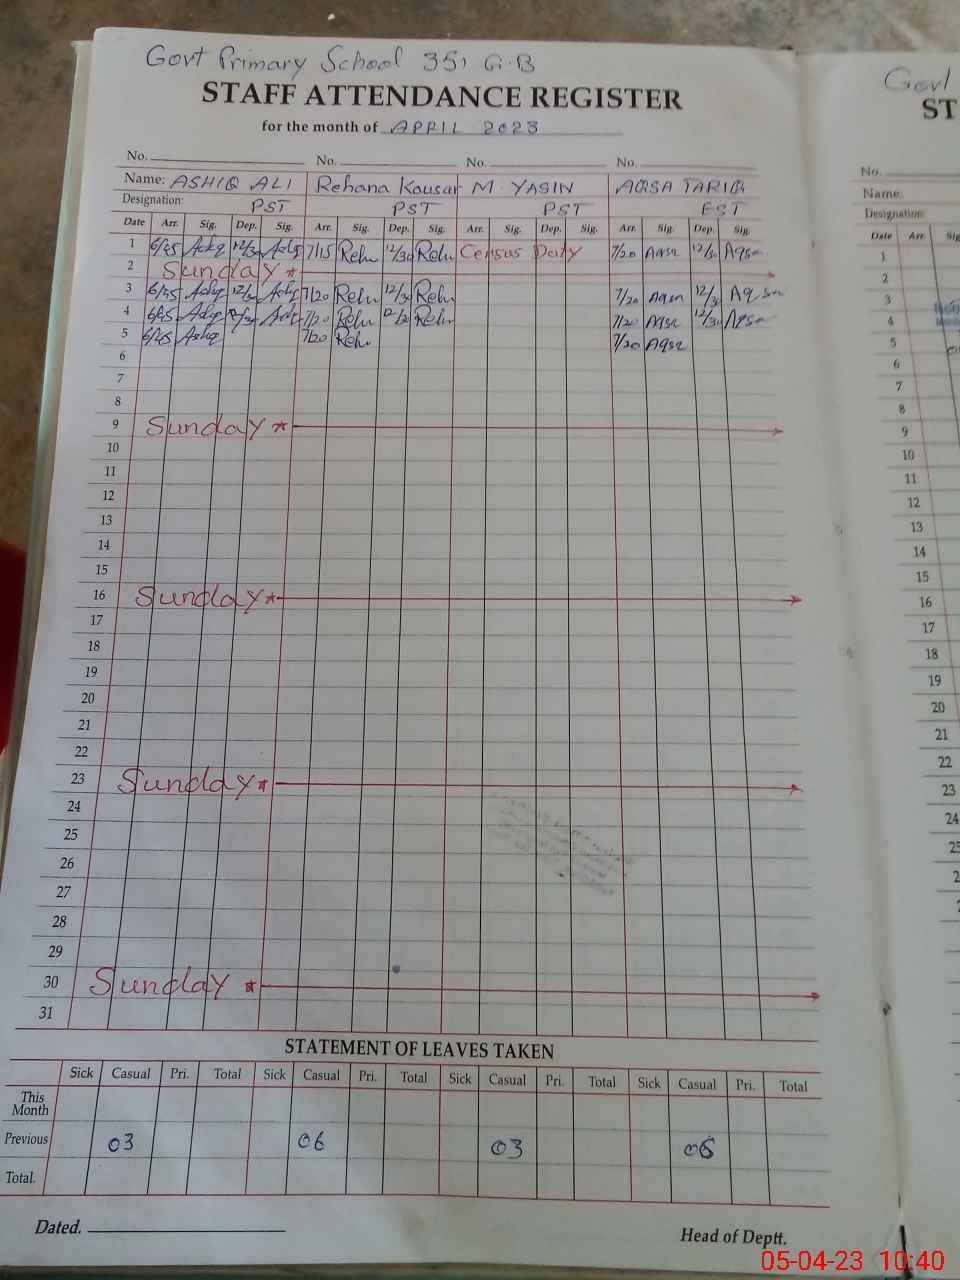 Govt Primary School 351 G.B
STAFF ATTENDANCE REGISTER
for the month of APRIL 2023
No. No. No. No.
Name: ASHIQ ALI Rehana Kousar M. YASIN AQSA TARIQ
Designation: PST PST PST EST
Date Arr. Sig. Dep. Sig. Arr. Sig. Dep. Sig. Arr. Sig. Dep. Sig. Arr. Sig. Dep. Sig.
1 6/45 Ashq 12/30 Ashq 7/15 Reh 12/30 Reh Census Duty 7/20 Aqsa 12/30 Aqsa
2 Sunday
3 6/45 Ashq 12/30 Ashq 7/20 Reh 12/30 Reh 7/20 Aqsa 12/30 Aqsa
4 6/45 Ashq 12/30 Ashq 7/20 Reh 12/30 Reh 7/20 Aqsa 12/30 Aqsa
5 6/45 Ashq 7/20 Reh 7/20 Aqsa
6
7
8
9 Sunday
10
11
12
13
14
15
16 Sunday
17
18
19
20
21
22
23 Sunday
24
25
26
27
28
29
30 Sunday
31
STATEMENT OF LEAVES TAKEN
Sick Casual Pri. Total Sick Casual Pri. Total Sick Casual Pri. Total Sick Casual Pri. Total
This
Month
Previous 03 06 03 06
Total.
Dated. Head of Deptt.
Govt
ST
No.
Name:
Designation:
Date Arr. Sig
1
2
3
4
5
6
7
8
9
10
11
12
13
14
15
16
17
18
19
20
21
22
23
24
25
05-04-23 10:40